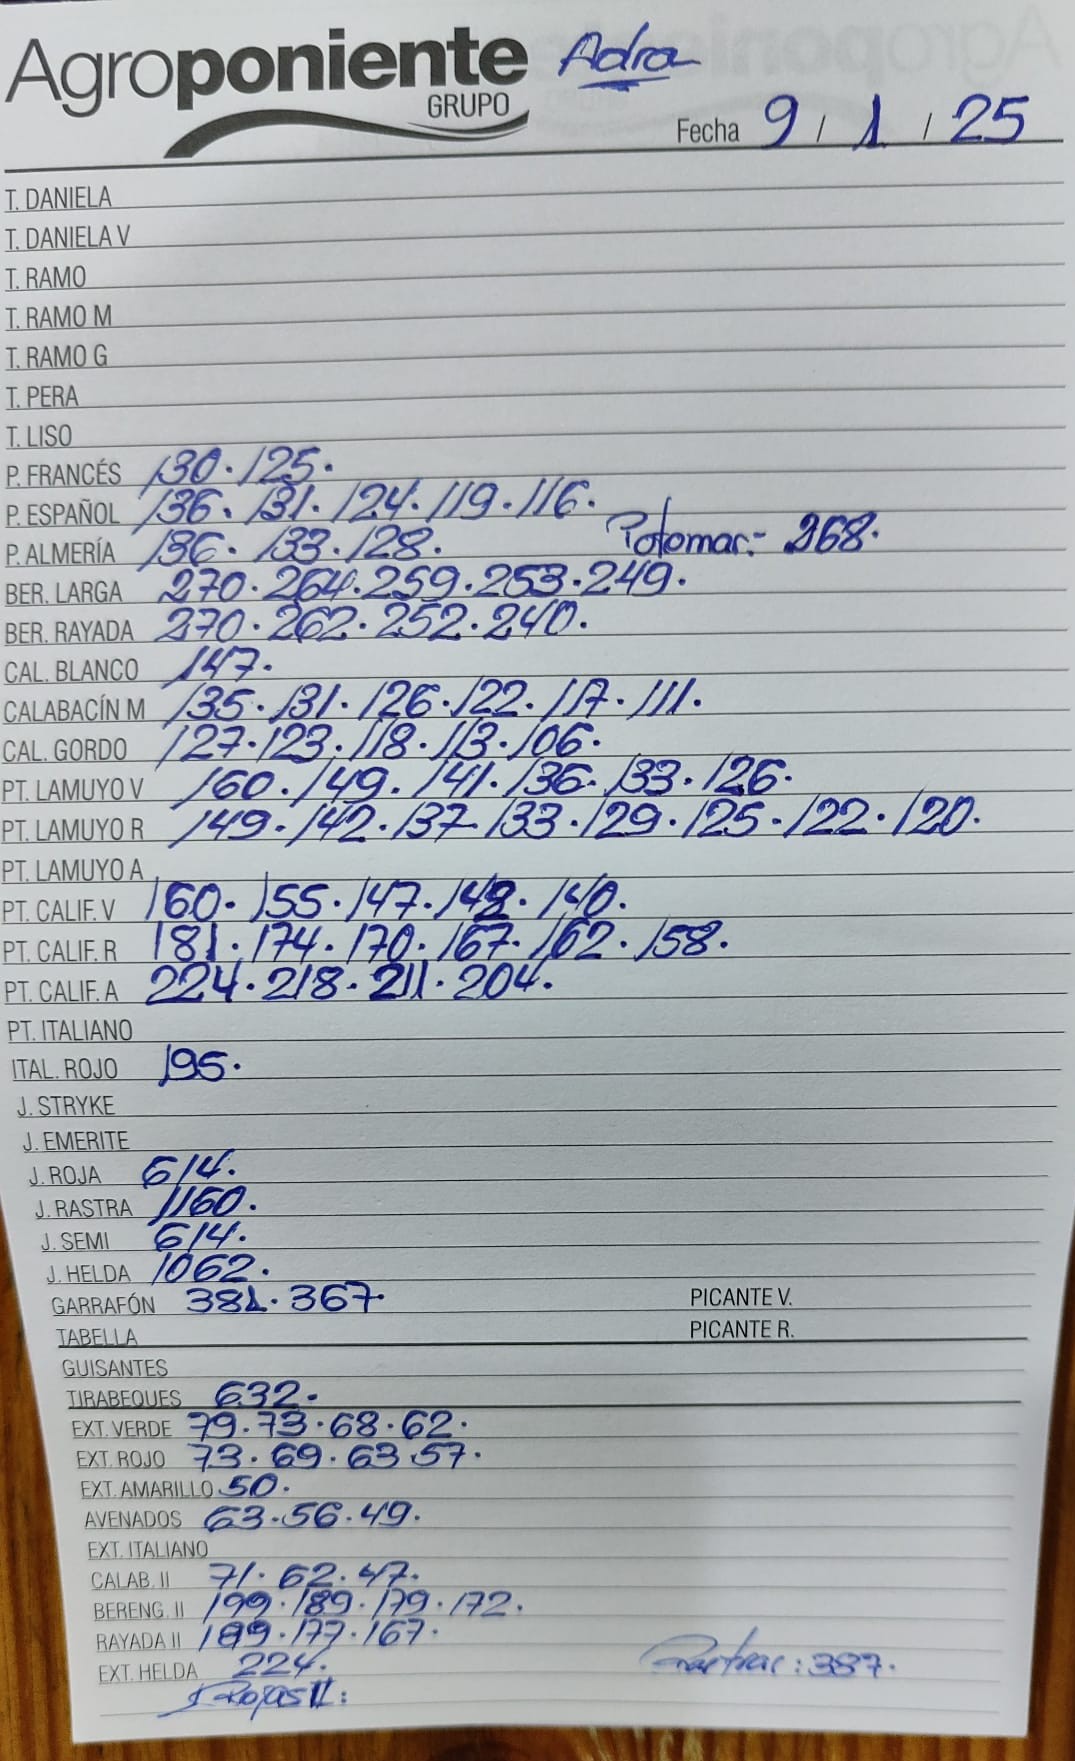 Agroponiente Adra
GRUPO
Fecha 9 / 1 / 25
T. DANIELA
T. DANIELA V
T. RAMO
T. RAMO M
T. RAMO G
T. PERA
T. LISO
P. FRANCÉS 130. 125.
P. ESPAÑOL 136. 131. 124. 119. 116.
P. ALMERÍA 136. 133. 128. 268.
BER. LARGA 270. 264. 259. 253. 249.
BER. RAYADA 270. 262. 252. 240.
CAL. BLANCO 147.
CALABACÍN M 135. 131. 126. 122. 117. 111.
CAL. GORDO 127. 123. 118. 113. 106.
PT. LAMUYO V 160. 149. 141. 136. 133. 126.
PT. LAMUYO R 149. 142. 137. 133. 129. 125. 122. 120.
PT. LAMUYO A
PT. CALIF. V 160. 155. 147. 142. 140.
PT. CALIF. R 181. 174. 170. 167. 162. 158.
PT. CALIF. A 224. 218. 211. 204.
PT. ITALIANO
ITAL. ROJO 195.
J. STRYKE
J. EMERITE
J. ROJA 614.
J. RASTRA 1160.
J. SEMI 614.
J. HELDA 1062.
GARRAFÓN 381. 367. PICANTE V.
TABELLA PICANTE R.
GUISANTES
TIRABEQUES 632.
EXT. VERDE 79. 73. 68. 62.
EXT. ROJO 73. 69. 63. 57.
EXT. AMARILLO 50.
AVENADOS 63. 56. 49.
EXT. ITALIANO
CALAB. II 71. 62. 47.
BERENG. II 199. 189. 179. 172.
RAYADA II 189. 177. 167.
EXT. HELDA 224. : 387.
Rojas II: